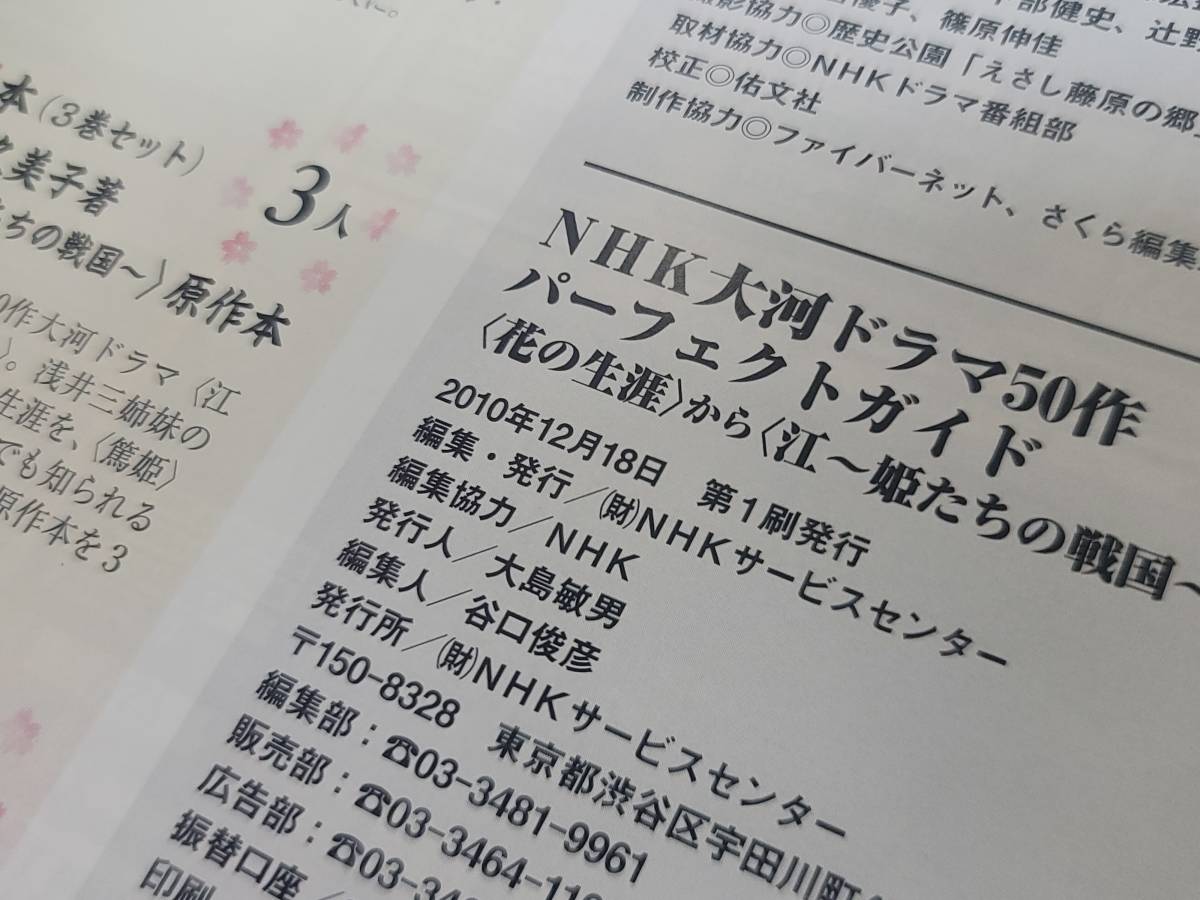 本(3巻セット)
美子著
ちの戦国〜〉原作本
3人
作大河ドラマ〈江
〉。浅井三姉妹の
生涯を、〈篤姫〉
でも知られる
原作本を3
優子、篠原伸佳
部健史、辻野
撮影協力◎歴史公園「えさし藤原の郷
取材協力◎NHKドラマ番組部
校正◎佑文社
制作協力◎ファイバーネット、さくら編集
NHK大河ドラマ50作
パーフェクトガイド
〈花の生涯〉から〈江〜姫たちの戦国〜
2010年12月18日 第1刷発行
編集・発行/(財)NHKサービスセンター
編集協力/NHK
発行人/大島敏男
編集人/谷口俊彦
発行所/(財)NHKサービスセンター
〒150-8328 東京都渋谷区宇田川町
編集部:☎03-3481-9961
販売部:☎03-3464-11
広告部:☎03-34
振替口座/
印刷